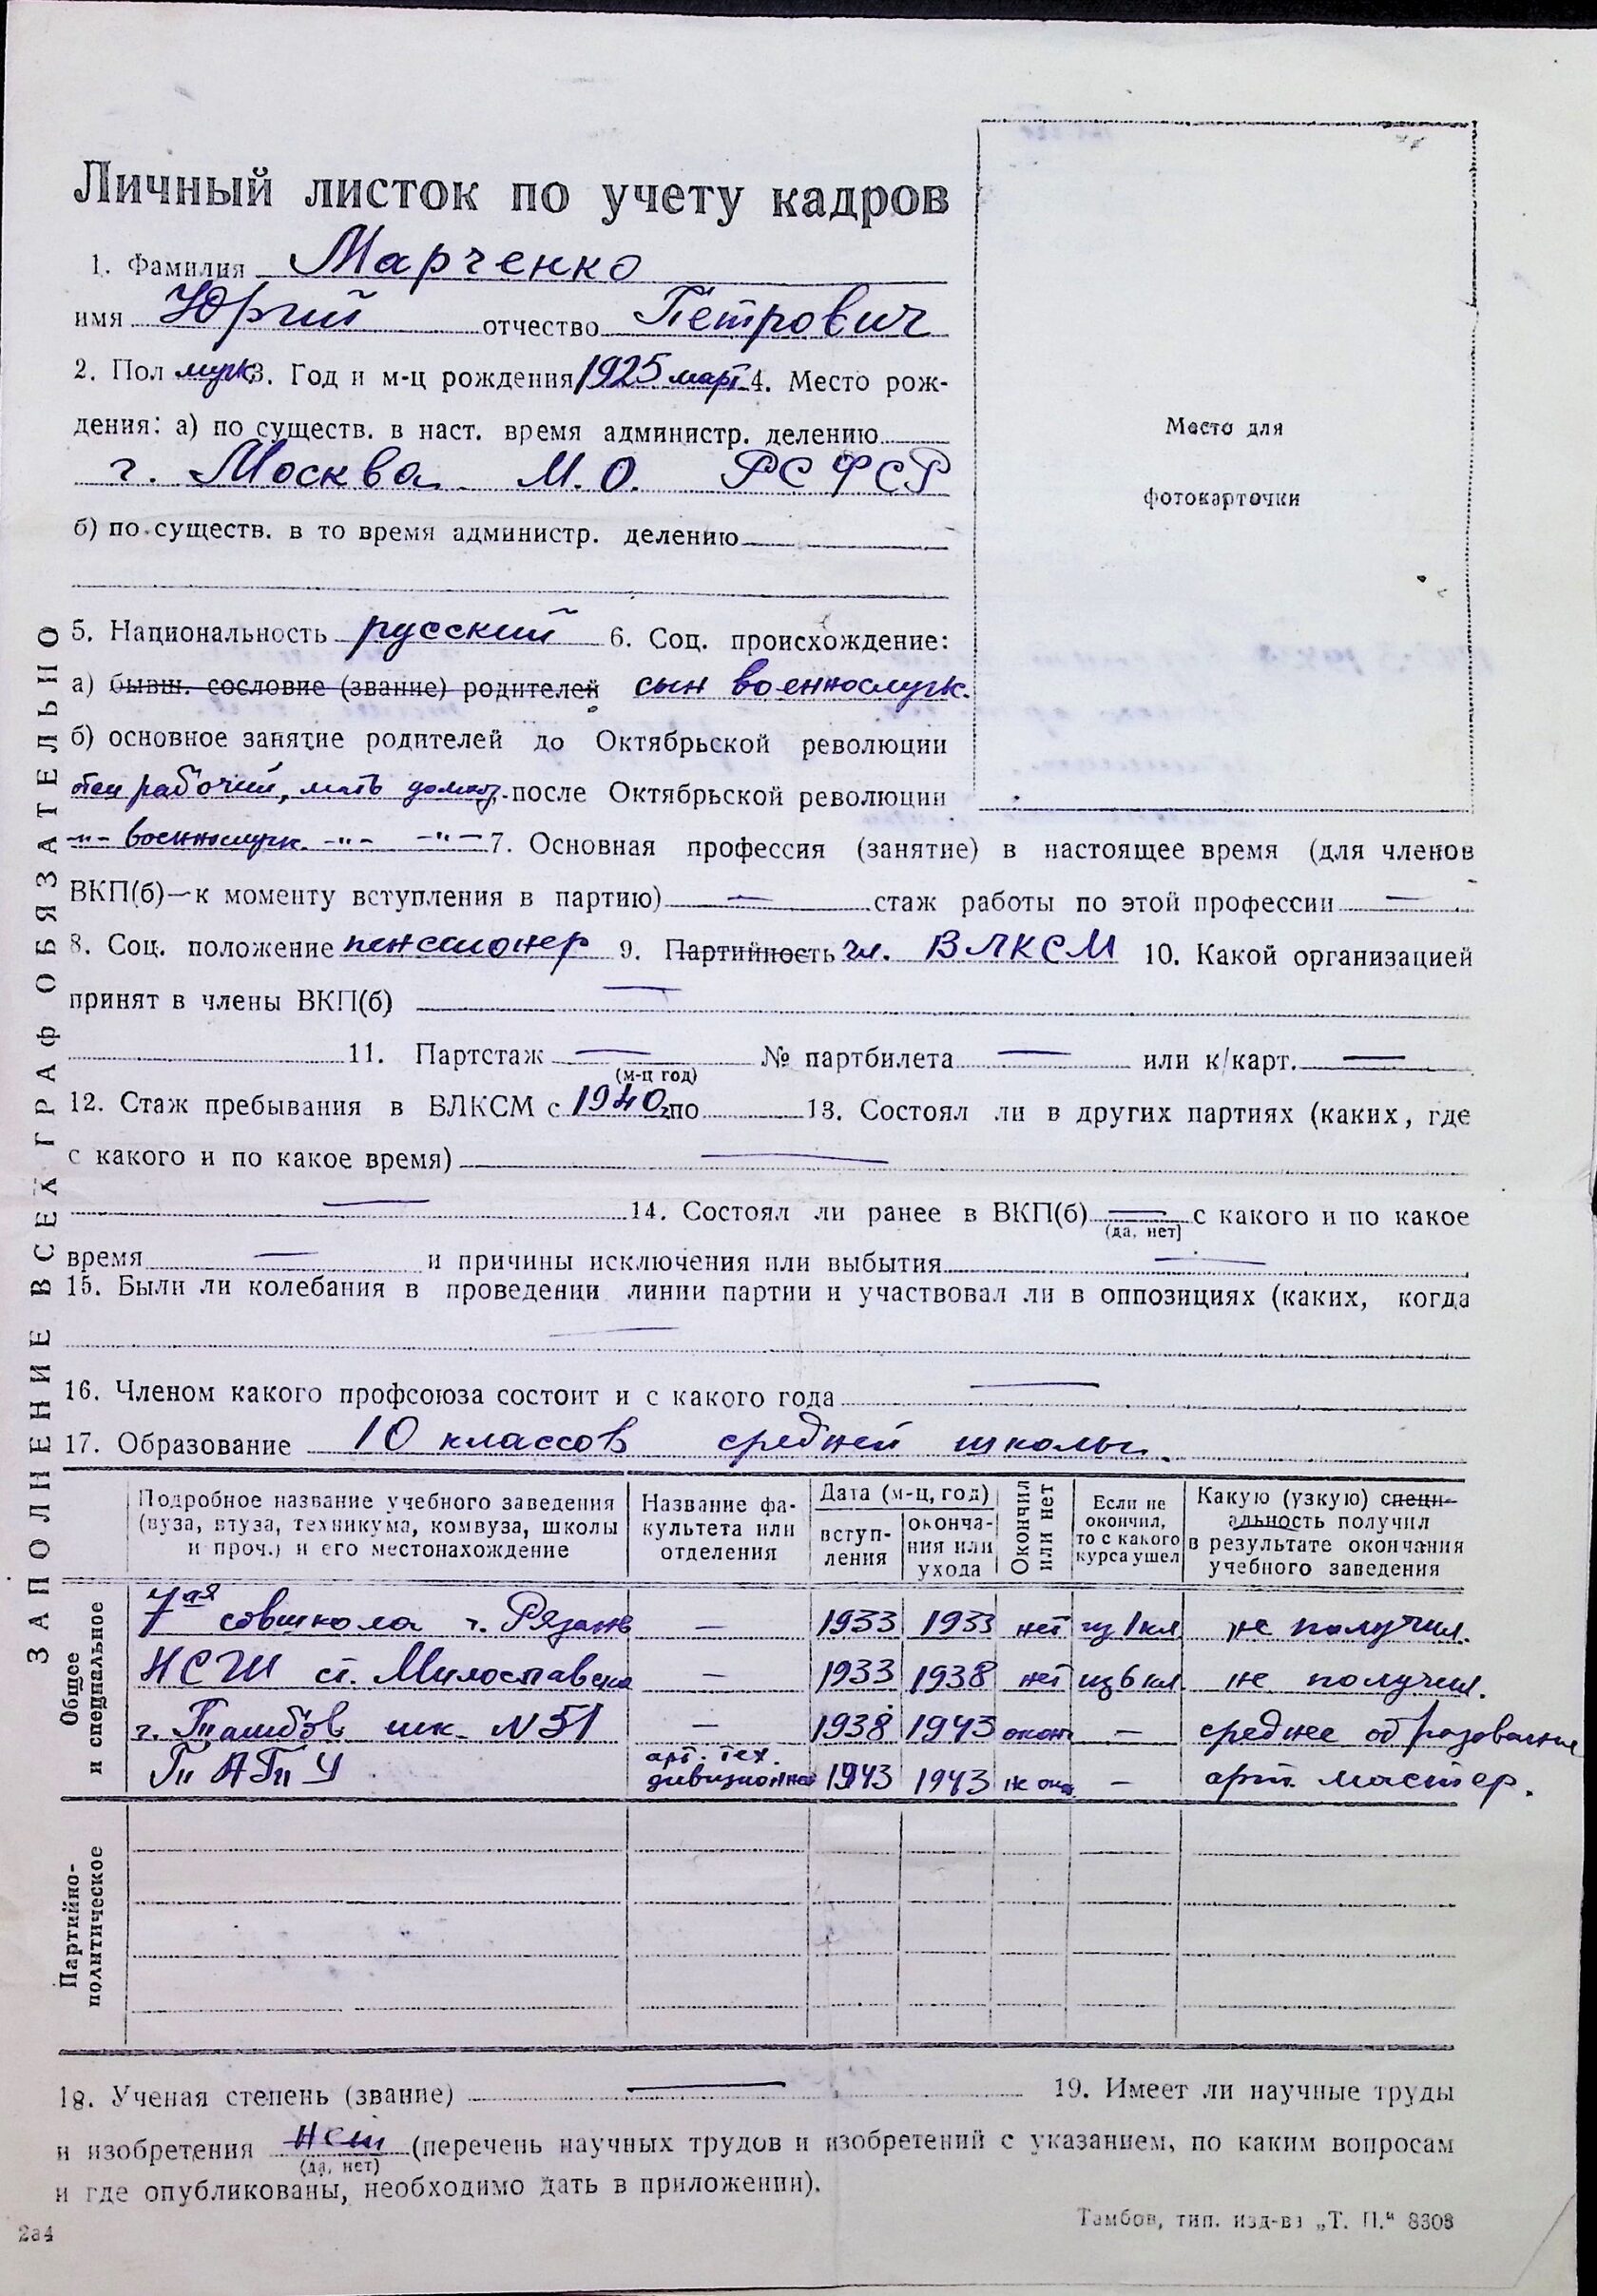 Личный листок по учету кадров
1. Фамилия Марченко
имя Юрий отчество Петрович
2. Пол муж. 3. Год и м-ц рождения 1925 март 4. Место рож-
дения: а) по существ. в наст. время администр. делению
г. Москва М.О. РСФСР
б) по существ. в то время администр. делению
5. Национальность русский 6. Соц. происхождение:
а) бывш. сословие (звание) родителей сын военнослуж.
б) основное занятие родителей до Октябрьской революции
отец рабочий, мать домхоз. после Октябрьской революции
-"- военнослуж. -"- -"- 7. Основная профессия (занятие) в настоящее время (для членов
ВКП(б)—к моменту вступления в партию) — стаж работы по этой профессии —
8. Соц. положение пенсионер 9. Партийность чл. ВЛКСМ 10. Какой организацией
принят в члены ВКП(б) —
11. Партстаж — № партбилета — или к/карт. —
(м-ц год)
12. Стаж пребывания в ВЛКСМ с 1940г. по 13. Состоял ли в других партиях (каких, где
с какого и по какое время) —
— 14. Состоял ли ранее в ВКП(б) — с какого и по какое
(да, нет)
время — и причины исключения или выбытия —
15. Были ли колебания в проведении линии партии и участвовал ли в оппозициях (каких, когда
—
16. Членом какого профсоюза состоит и с какого года —
17. Образование 10 классов средней школы
Подробное название учебного заведения (вуза, втуза, техникума, комвуза, школы и проч.) и его местонахождение
Название факультета или отделения
Дата (м-ц, год)
вступ-
ления
оконча-
ния или
ухода
Окончил
или нет
Если не
окончил,
то с какого
курса ушел
Какую (узкую) специ-
альность получил
в результате окончания
учебного заведения
Общее
и специальное
7ая совшкола г. Рязань — 1933 1933 нет из 1 кл не получил.
НСШ ст. Милославская — 1933 1938 нет из 6 кл. не получил.
г. Тамбов шк. N 51 — 1938 1943 оконч — среднее образование
ТАТУ арт. тех. дивизионное 1943 1943 не ок — арт. мастер.
Партийно-
политическое
18. Ученая степень (звание) — 19. Имеет ли научные труды
и изобретения нет (перечень научных трудов и изобретений с указанием, по каким вопросам
(да, нет)
и где опубликованы, необходимо дать в приложении).
Тамбов, тип. изд-ва „Т. П." 8308
2а4
ЗАПОЛНЕНИЕ ВСЕХ ГРАФ ОБЯЗАТЕЛЬНО
Место для
фотокарточки